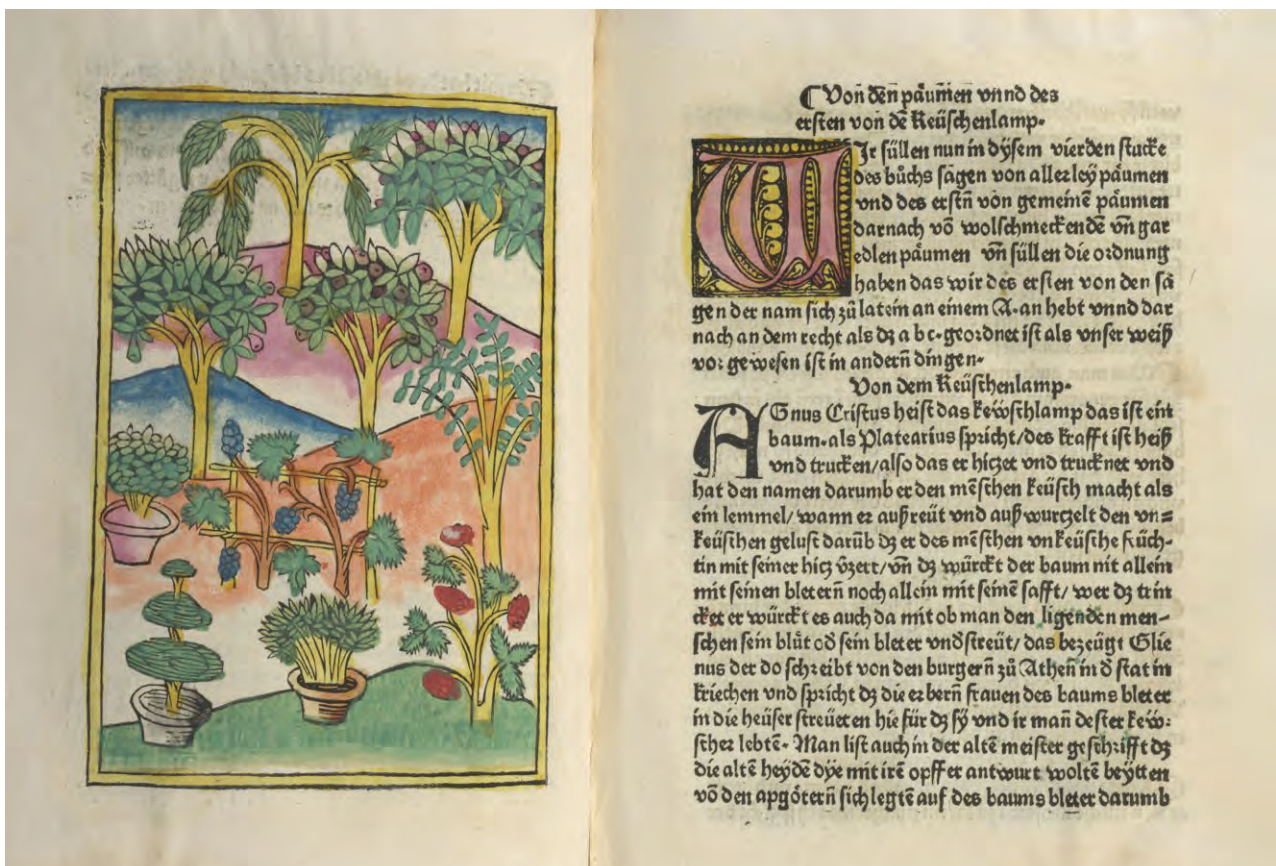 ⸿ Von dēn päumen vnnd des
ersten von dē Keüschenlamp.
WIr süllen nun in dÿsem vierden stucke
des bůchs sagen von allerleÿ päumen
vnd des erstn̄ von gemeinē päumen
darnach vō wolschmeckendē vn̄ gar
edlen päumen vn̄ süllen die ordnung
haben das wir des ersten von den sa
gen der nam sich zů latein an einem A. an hebt vnnd dar
nach an dem recht als dz a bc. geordnet ist als vnser weiß
vor gewesen ist in andern̄ dingen.
Von dem Keüschenlamp.
AGnus Cristus heist das kewschlamp das ist ein
baum. als Platearius spricht/ des krafft ist heiß
vnd trucken/ also das er hiczet vnd trucknet vnd
hat den namen darumb er den mēschen keüsch macht als
ein lemmel/ wann er außreüt vnd außwurczelt den vn=
keüschen gelust darūb dz er des mēschen vnkeüsche früch-
tin mit seiner hicz v̄zert/ vn̄ dz würckt der baum nit allein
mit seinen bletern̄ noch allein mit seinē safft/ wer dz trin
cket er würckt es auch da mit ob man den ligenden men-
schen sein blüt od̄ sein bleter vnd̄streüt/ das bezeügt Glie
nus der do schreibt von den burgern̄ zů Athen̄ in d̄ stat in
kriechen vnd spricht dz die erbern̄ frauen des baums bleter
in die heüser streüeten hie für dz sÿ vnd ir man̄ dester kew-
scher lebtē. Man list auch in der altē meister geschrifft dz
die altē heÿdē dÿe mit irē opffer antwurt woltē beÿtten
vō den apgötern̄ sich legtē auf des baums bleter darumb